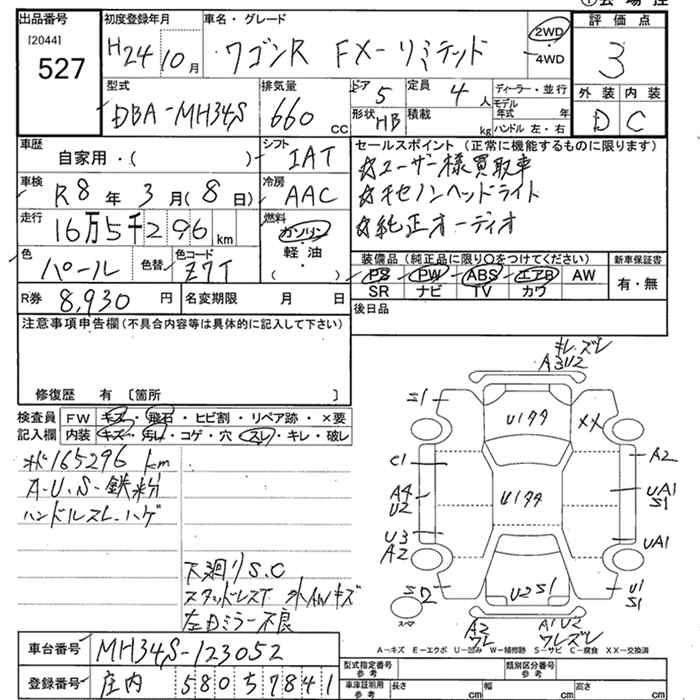 ①会場控
出品番号 [2044] 527
初度登録年月 H24年10月
車名・グレード ワゴンR FX-リミテッド
2WD・4WD
評価点 3
外装 D 内装 C
型式 DBA-MH34S
排気量 660 CC
ドア 5 形状 HB
定員 4 人 積載 kg
ディーラー・並行
モデル年式 年
ハンドル 左・右
車歴 自家用・( )
シフト IAT
車検 R8年3月(8日)
冷房 AAC
走行 16万5千296 km
燃料 ガソリン 軽油 ( ・ )
色 パール 色替 色コード Z7T
R券 8,930 円 名変期限 月 日
セールスポイント (正常に機能するものに限ります)
☆ユーザー様買取車
☆キセノンヘッドライト
☆純正オーディオ
装備品 (純正品に限り○をつけてください) 新車保証書
PS PW ABS エアB AW
SR ナビ TV カワ
有・無
後日品
注意事項申告欄 (不具合内容等は具体的に記入して下さい)
修復歴 有 〔箇所 〕
検査員記入欄
FW キズ・飛石・ヒビ割・リペア跡・×要
内装 キズ・汚レ・コゲ・穴・スレ・キレ・破レ
メーター165296 km
A-U、S・鉄粉
ハンドルスレ、ハゲ
下廻りS、C
スタッドレスT 外AWキズ
左Dミラー不良
キレ・ズレ
A3U2
S1
U1 77
XX
C1
A2
A4
U2
U1 77
UA1
S1
U3
A2
UA1
S2
スペア
U2 S1
U1
S1
A2
ワレ
A1 U2
ワレズレ
A-キズ E-エクボ U-凹み W-補修跡 S-サビ C-腐食 XX-交換済
車台番号 MH34S-123052
登録番号 庄内 580 5 7841
型式指定番号 参考
類別区分番号 参考
車庫証明用 参考 長さ cm 幅 cm 高さ cm